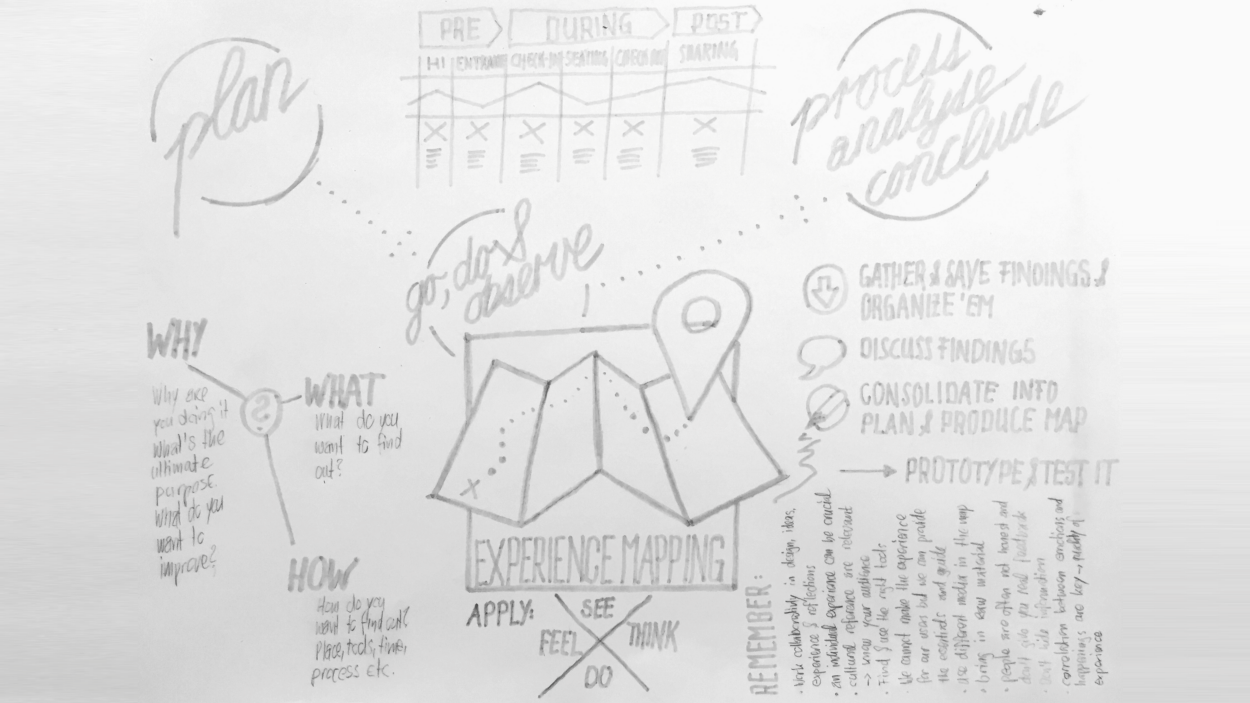 plan
PRE DURING POST
HI ENTRANCE CHECK-IN SEATING CHECK OUT SHARING
process
analyse
conclude
go, do &
observe
WHY
Why are
you doing it
What's the
ultimate
purpose.
What do you
want to
improve?
?
WHAT
What do you
want to find
out?
HOW
How do you
want to find out?
Place, tools, time,
process etc.
X
EXPERIENCE MAPPING
APPLY:
SEE
FEEL THINK
DO
GATHER & SAVE FINDINGS &
ORGANIZE 'EM
DISCUSS FINDINGS
CONSOLIDATE INFO
PLAN & PRODUCE MAP
→ PROTOTYPE & TEST IT
REMEMBER:
• Work collaboratively in design, ideas,
experience & reflections
• an individual experience can be crucial
• cultural reference are relevant
→ know your audience
• Find & use the right tools
• We cannot make the experience
for our users but we can provide
the essentials and guide
• Use different media in the map
• bring in raw material
• people are often not honest and
don't give you real feedback
• Don't hide information
• correlation between emotions and
happenings are key → quality of
experience